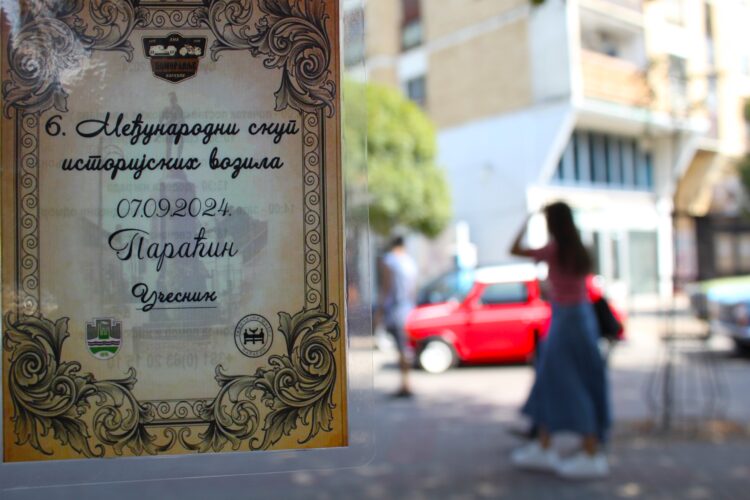 ПОМОРАВЉЕ
6. Међународни скуп
историјских возила
07.09.2024.
Параћин
Учесник